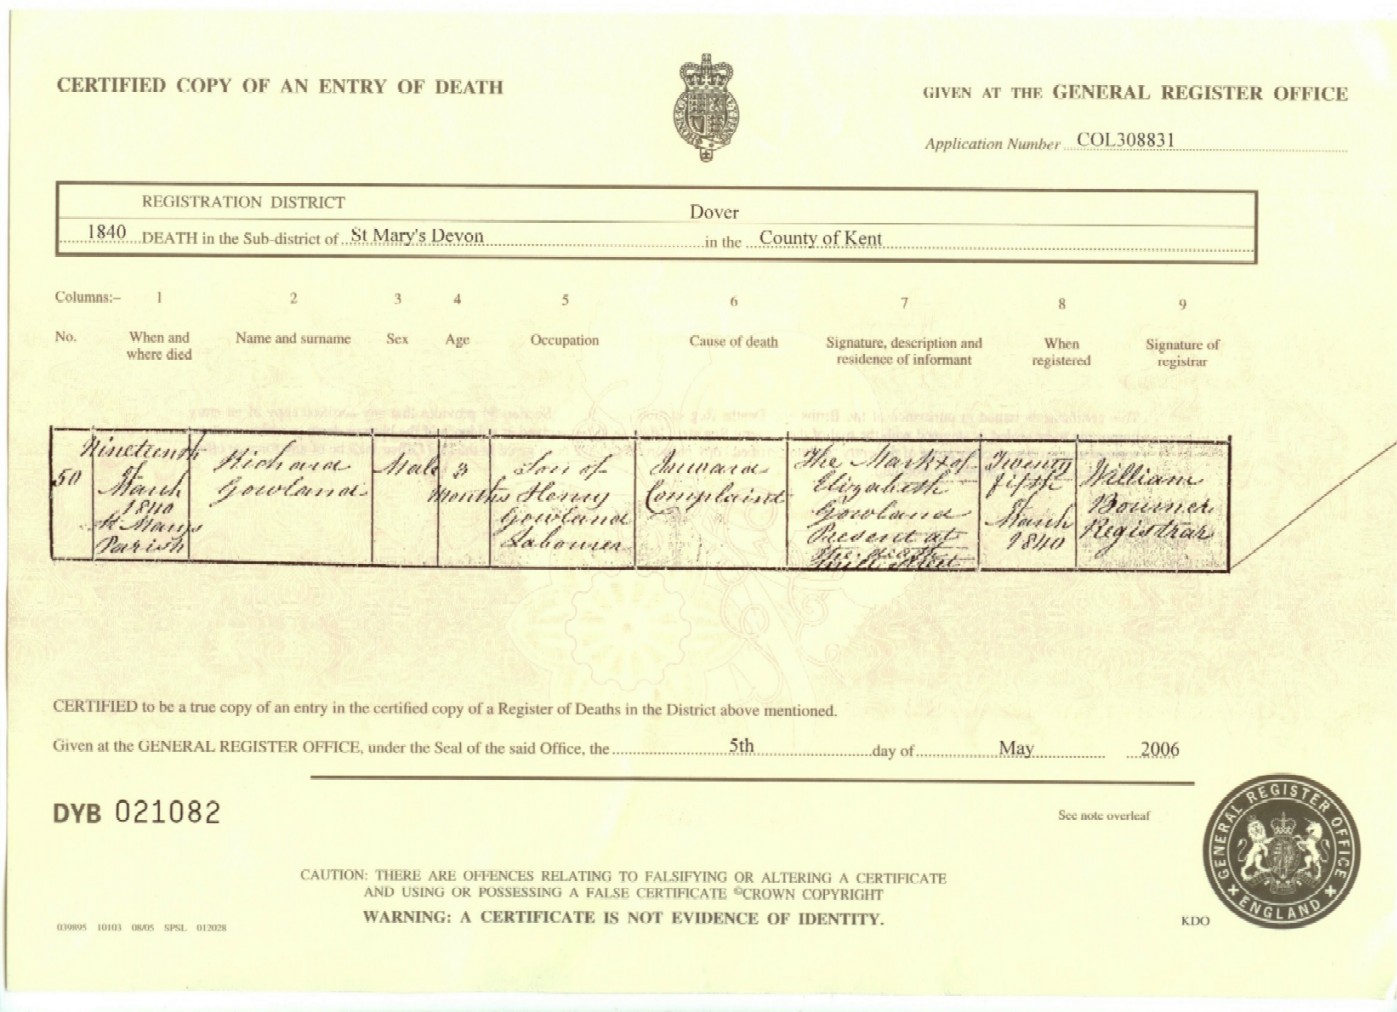 CERTIFIED COPY OF AN ENTRY OF DEATH
GIVEN AT THE GENERAL REGISTER OFFICE
Application Number COL308831
REGISTRATION DISTRICT
Dover
1840 DEATH in the Sub-district of St Mary's Devon in the County of Kent
Columns:- 1 2 3 4 5 6 7 8 9
No.
When and
where died
Name and surname
Sex
Age
Occupation
Cause of death
Signature, description and
residence of informant
When
registered
Signature of
registrar
50
Nineteenth
of
March
1840
St Marys
Parish
Richard
Gowland
Male
3
Months
Son of
Henry
Gowland
Labourer
Inward
Complaint
The Mark x of
Elizabeth
Gowland
Present at
the death
Twenty
fifth
March
1840
William
Bourner
Registrar
CERTIFIED to be a true copy of an entry in the certified copy of a Register of Deaths in the District above mentioned.
Given at the GENERAL REGISTER OFFICE, under the Seal of the said Office, the 5th day of May 2006
DYB 021082
See note overleaf
CAUTION: THERE ARE OFFENCES RELATING TO FALSIFYING OR ALTERING A CERTIFICATE
AND USING OR POSSESSING A FALSE CERTIFICATE ©CROWN COPYRIGHT
WARNING: A CERTIFICATE IS NOT EVIDENCE OF IDENTITY.
039895 10103 08/05 SPSL 012028
KDO
GENERAL REGISTER OFFICE
ENGLAND